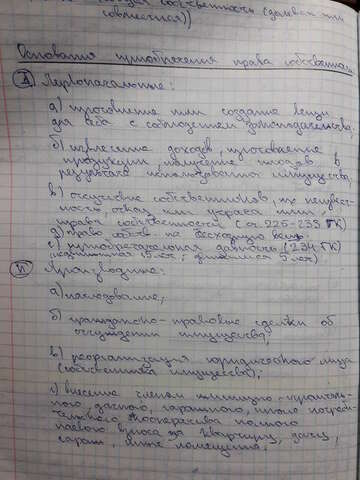 собственность (долевая или
совместная))
Основания приобретения права собственнос
I Первоначальные:
а) изготовление или создание вещи
для себя с соблюдением законодательства;
б) извлечение доходов, изготовление
продукции, получение плодов в
результате использования имущества
в) отсутствие собственников, их неизвест-
ность, отказ или утрата ими
права собственности (ст. 225-233 ГК)
д) право собств. на бесхозную вещь
е) приобретательная давность (234 ГК)
(недвижимая 15 лет; движимая 5 лет)
II Производные:
а) наследование;
б) гражданско-правовые сделки об
отчуждении имущества;
в) реорганизация юридического лица
(собственника имущества);
г) внесение членом жилищно-строитель-
ного, дачного, гаражного, иного потреби-
тельского кооператива полного
паевого взноса за квартиру, дачу,
гараж, иные помещения;